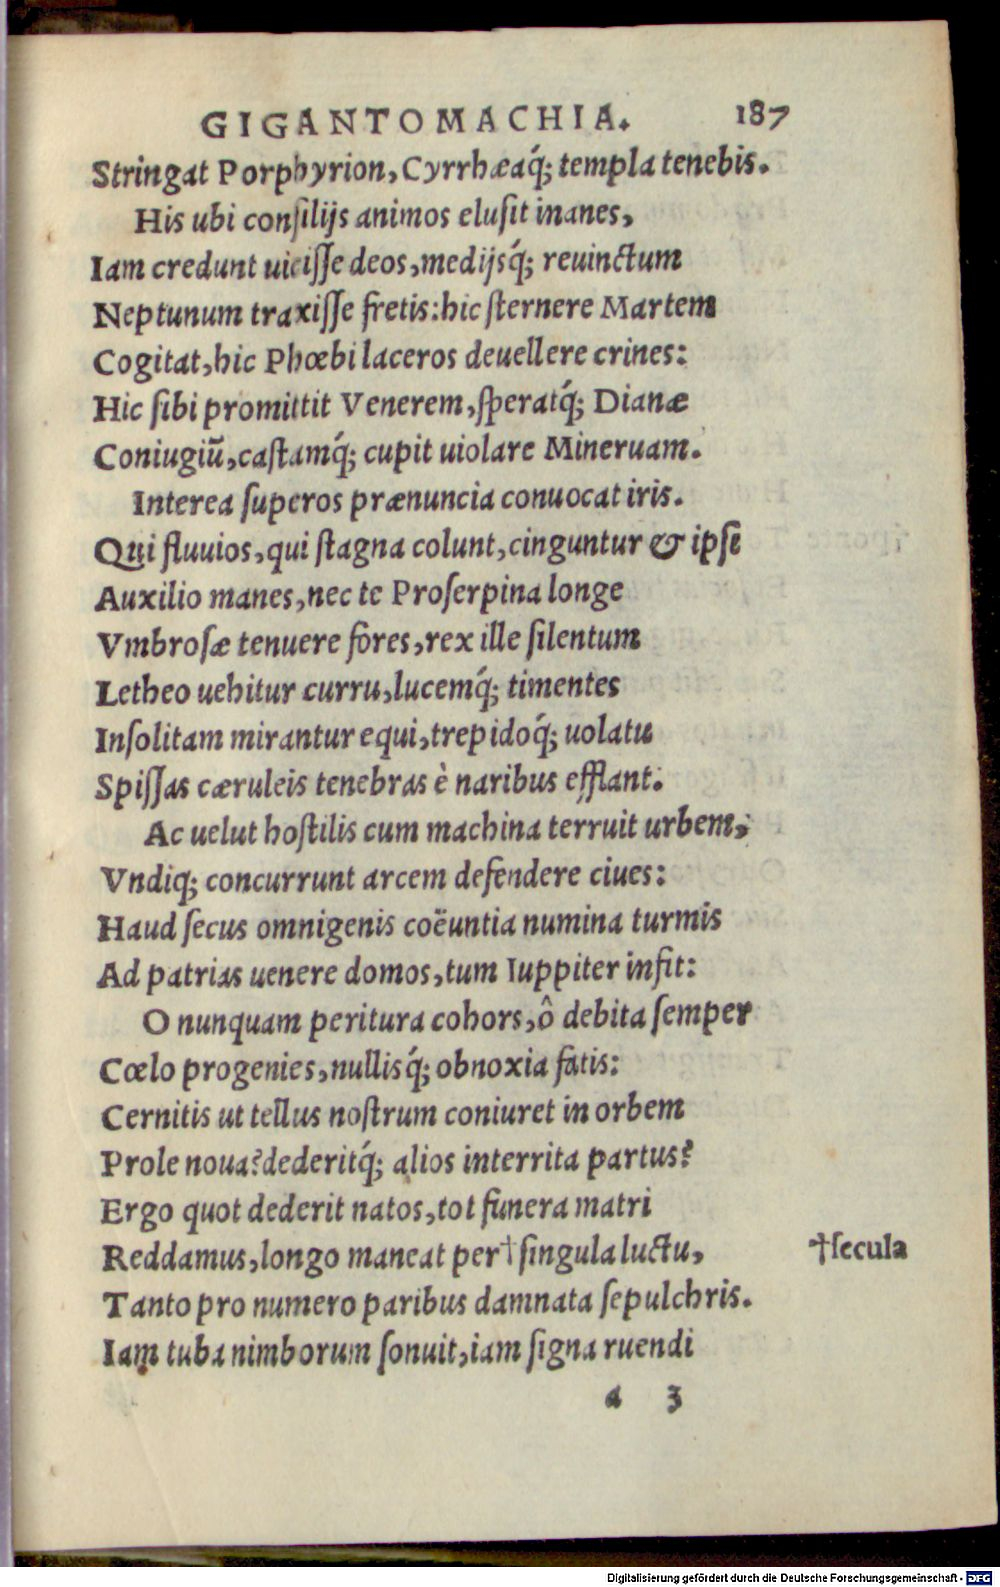 GIGANTOMACHIA. 187
Stringat Porphyrion, Cyrrhæaq́; templa tenebis.
His ubi consilijs animos elusit inanes,
Iam credunt uicisse deos, medijsq́; reuinctum
Neptunum traxisse fretis: hic sternere Martem
Cogitat, hic Phœbi laceros deuellere crines:
Hic sibi promittit Venerem, speratq́; Dianæ
Coniugiũ, castamq́; cupit uiolare Mineruam.
Interea superos prænuncia conuocat iris.
Qui fluuios, qui stagna colunt, cinguntur & ipse
Auxilio manes, nec te Proserpina longe
Vmbrosæ tenuere fores, rex ille silentum
Letheo uehitur curru, lucemq́; timentes
Insolitam mirantur equi, trepidoq́; uolatu
Spissas cæruleis tenebras è naribus efflant.
Ac uelut hostilis cum machina terruit urbem,
Vndiq; concurrunt arcem defendere ciues:
Haud secus omnigenis coëuntia numina turmis
Ad patrias uenere domos, tum Iuppiter infit:
O nunquam peritura cohors, ô debita semper
Cœlo progenies, nullisq́; obnoxia fatis:
Cernitis ut tellus nostrum coniuret in orbem
Prole noua? dederitq́; alios interrita partus?
Ergo quot dederit natos, tot funera matri
Reddamus, longo maneat per † singula luctu, †secula
Tanto pro numero paribus damnata sepulchris.
Iam tuba nimborum sonuit, iam signa ruendi
a 3
Digitalisierung gefördert durch die Deutsche Forschungsgemeinschaft - DFG